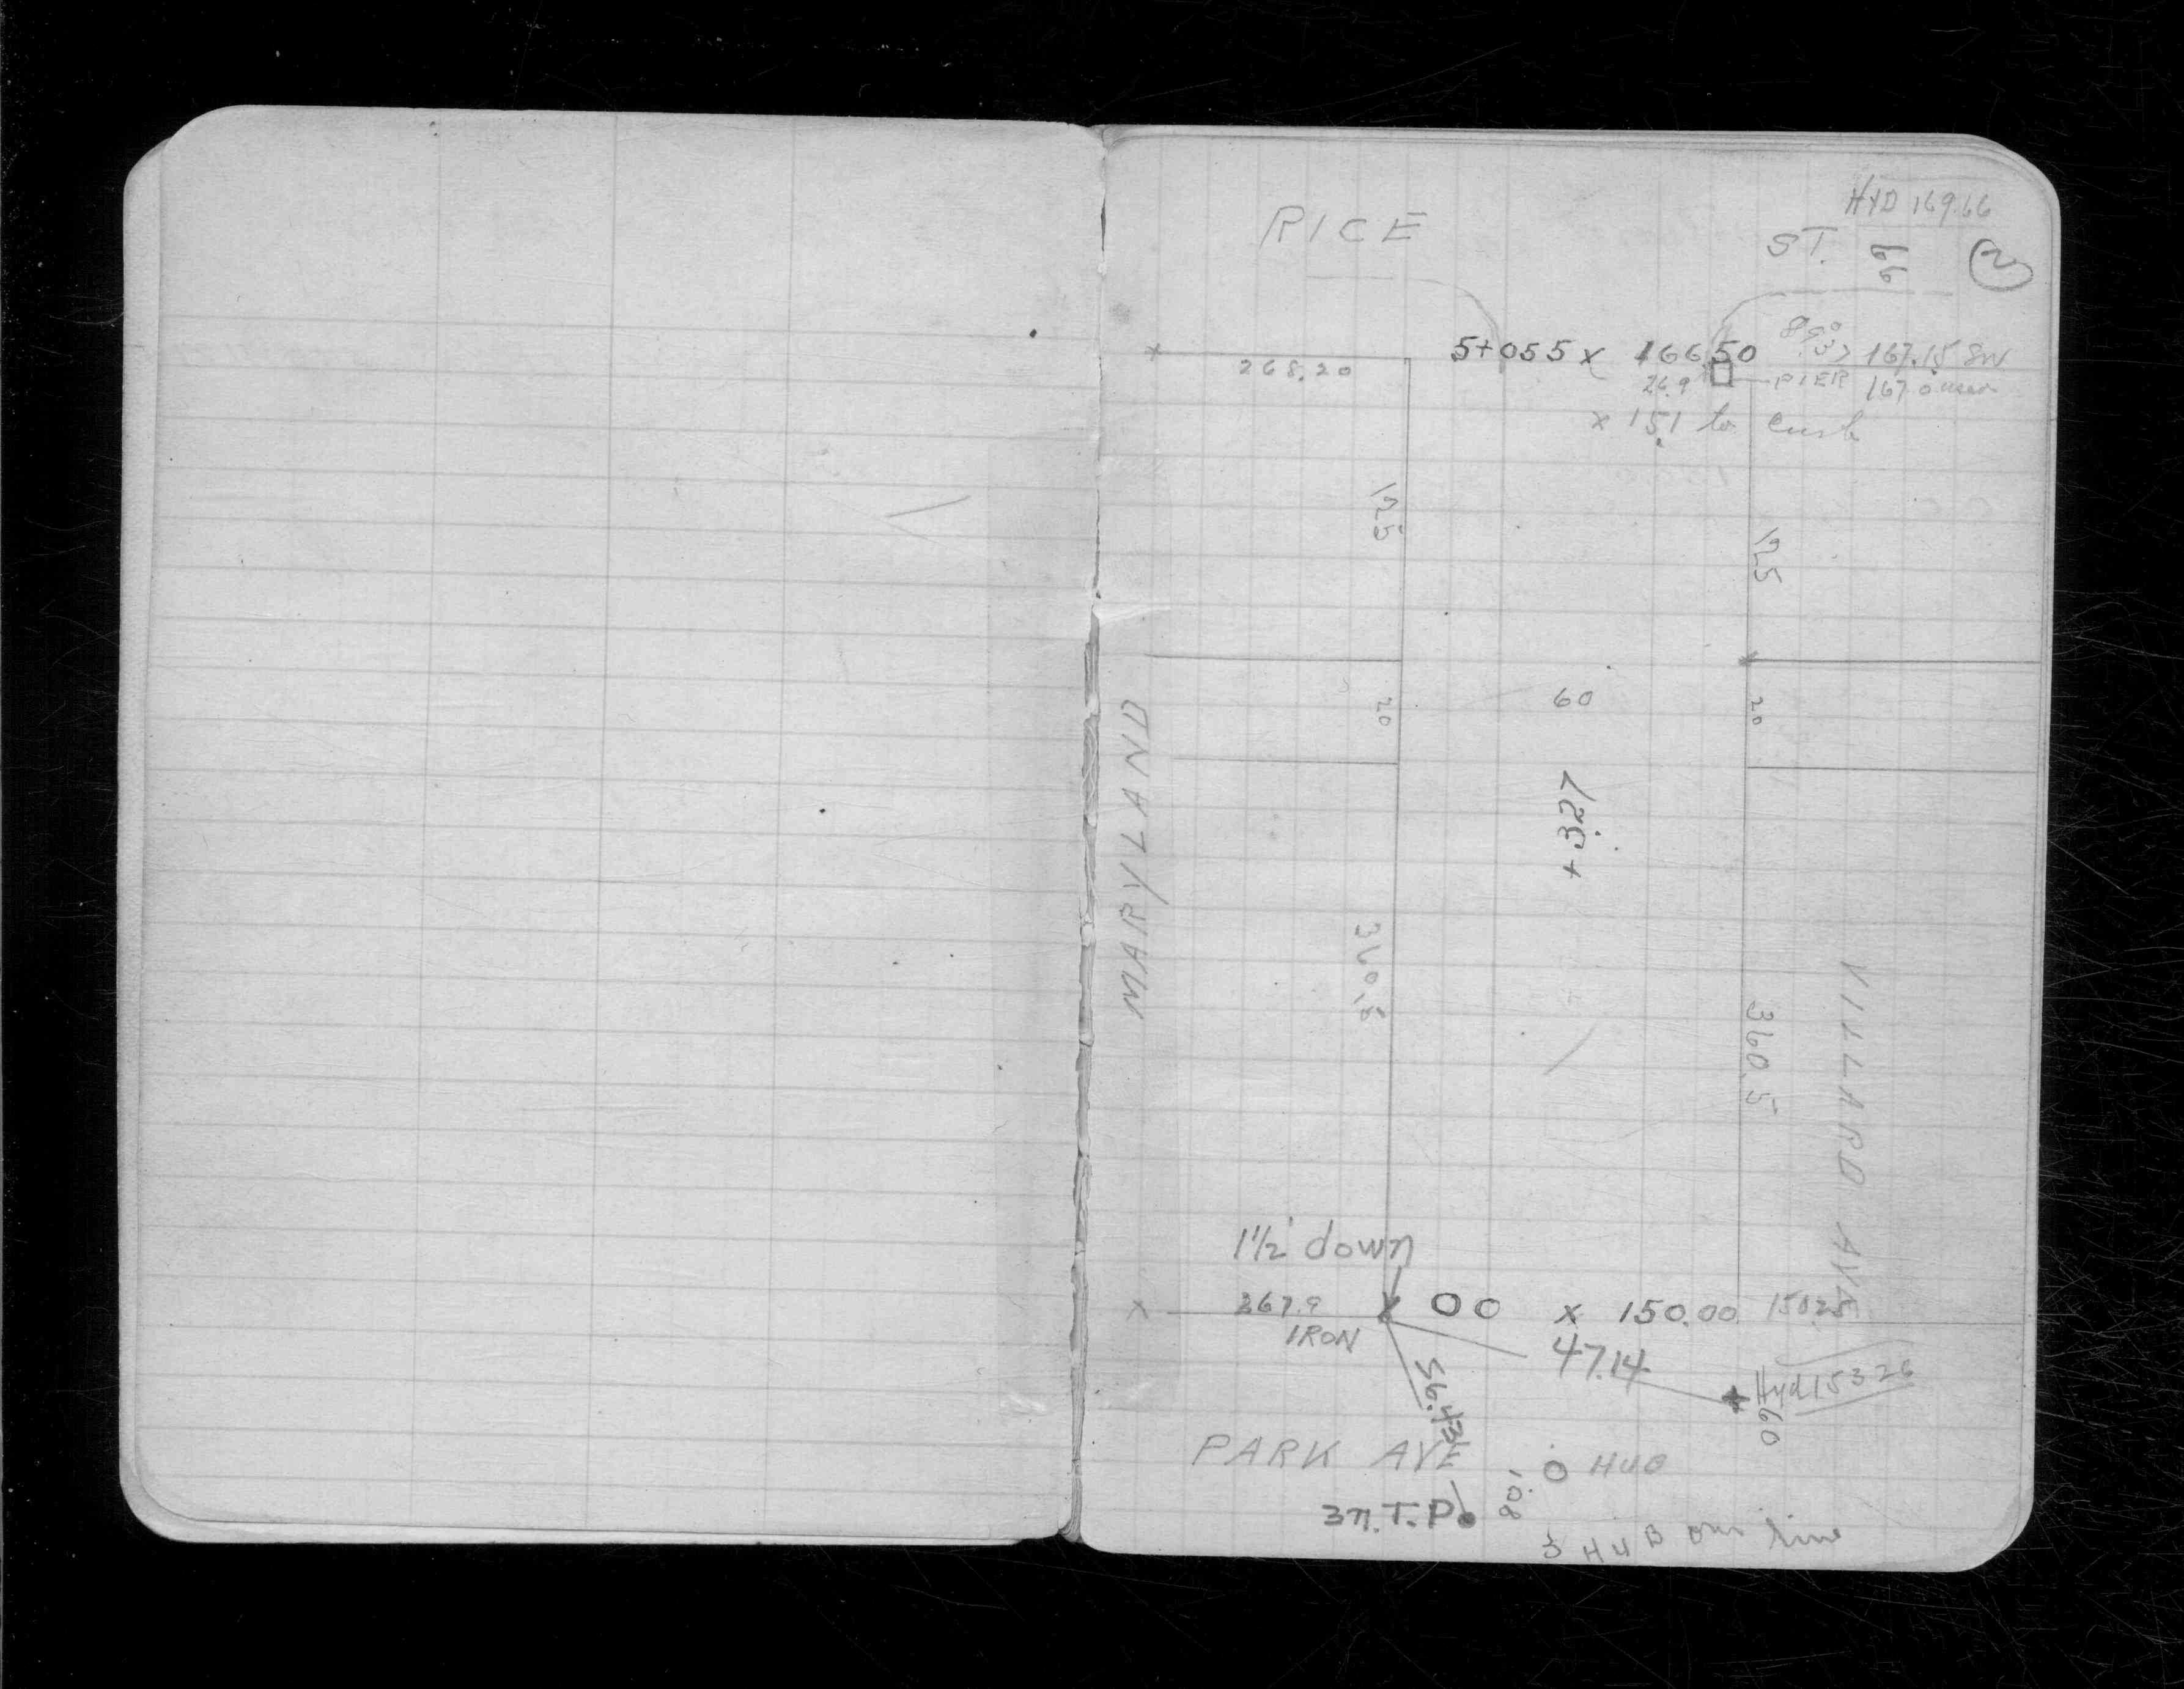 HYD 169.66
RICE ST. 66 2
5+055 x 166.50 89°37 167.15 SW
268.20 26.9 PIER 167.0 used
x 151 to curb
125 125
20 60 20
MARYLAND
+3.27
360.5 360.5
VILLARD AVE
1½' down
267.9 x 00 x 150.00 150.25
IRON 47.14
56.43 Hyd 153.26
60
PARK AVE
O HUB
3 n. T.P. 80.1
3 HUB on line